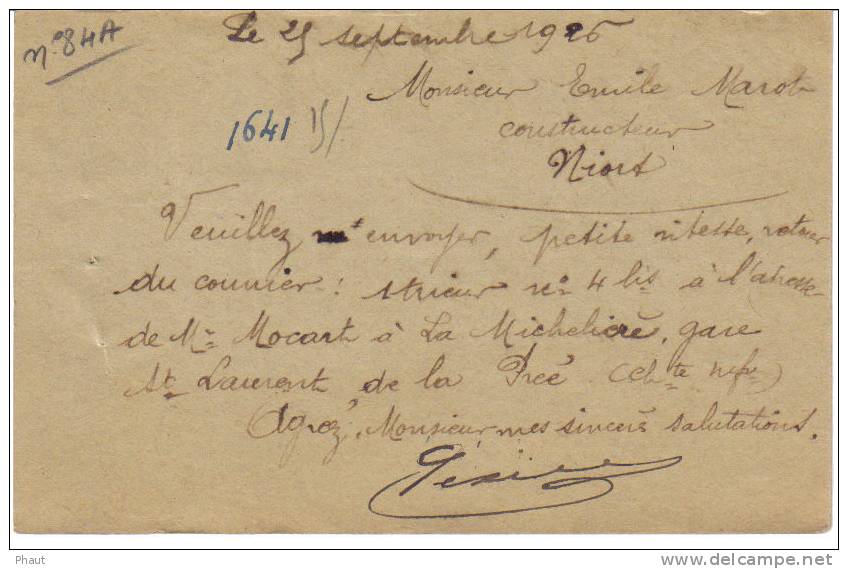 n° 84A
Le 25 septembre 1926
Monsieur Emile Marot
1641 15/
constructeur
Niort
Veuillez m'envoyer, petite vitesse, retour
du courrier : trieur n° 4 bis à l'adresse
de Mr Mocart à La Michelière, gare
St Laurent de la Prée (Chte Infre)
Agréz, Monsieur mes sincères salutations.
Phaut
www.delcampe.net